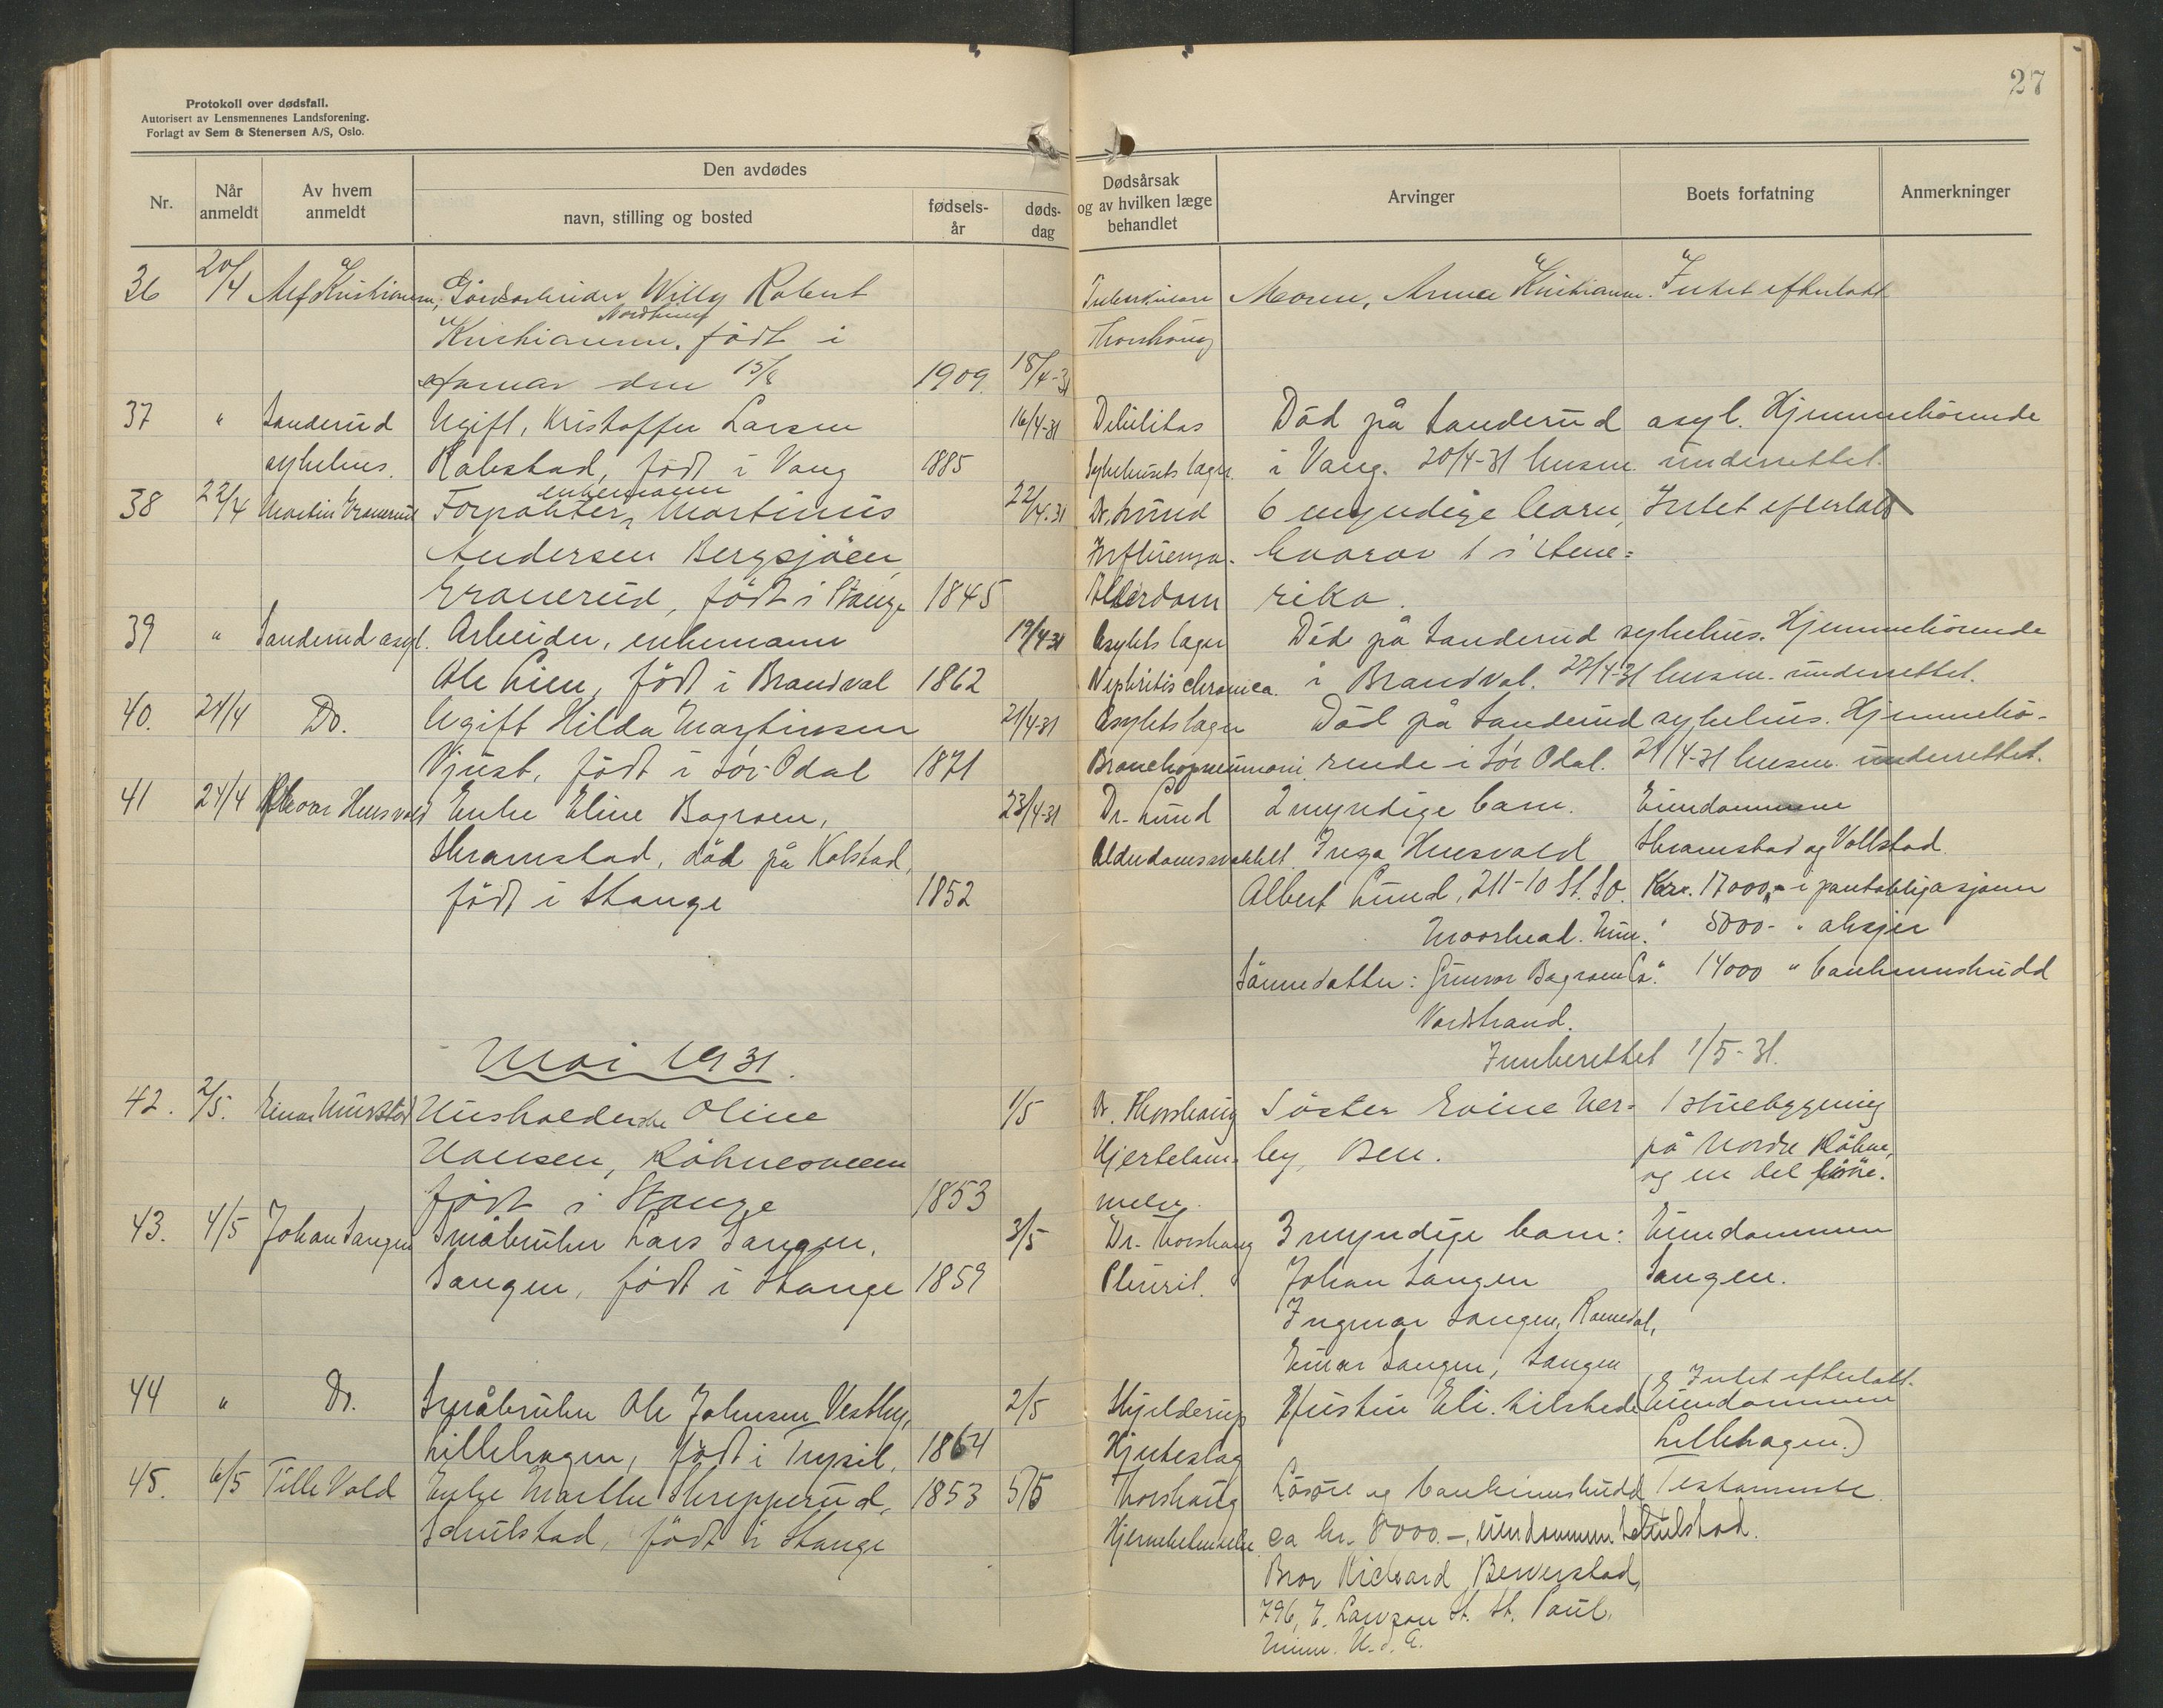 27
Protokoll over dødsfall.
Autorisert av Lensmennenes Landsforening.
Forlagt av Sem & Stenersen A/S, Oslo.
Nr.
Når anmeldt
Av hvem anmeldt
Den avdødes
navn, stilling og bosted
fødsels-år
døds-dag
Dødsårsak og av hvilken læge behandlet
Arvinger
Boets forfatning
Anmerkninger
36 20/4 Alf Kristiansen, Gårdsarbeider Willy Robert Tuberkulose Moren, Anna Kristiansen. Intet efterlatt
Kristiansen. født i Thorshaug
Hamar den 15/6 1909. 18/4-31
37 " Sanderud Ugift, Kristoffer Larsen 16/4-31 Debilitas Död på Sanderud asyl. Hjemmehörende
sykehus. Rabstad, född i Vang 1885 Sykehusets læge. i Vang. 20/4-31 lensm. underrettet.
38 22/4 Martin Granerud Forpakter, enkemann Martinus 22/4-31 Dr. Lund 6 myndige barn, Intet efterlatt
Andersen Bergsjöen Influensa. hvorav 1 i Ame=
Granerud, född i Stange 1845 Alderdom rika.
39 " Sanderud asyl. Arbeider, enkemann 19/4-31 Asylets læger Död på Sanderud sykehus. Hjemmehörende
Ole Lien, född i Brandval 1862 Nephritis chronica. i Brandval. 22/4-31 lensm. underrettet.
40. 24/4 Do. Ugift Hilda Martinsen 21/4-31 Asylets læger Död på Sanderud sykehus. Hjemmehö-
Njust, född i Sör-Odal 1871 Bronchopneumoni rende i Sör Odal. 24/4-31 lensm. underrettet.
41 24/4 Husvold Enke Eline Bagroen, 23/4-31 Dr. Lund 2 myndige barn. Eiendommene
Skramstad, död på Kolstad, Alderdomssvakhet Inga Husvold Skramstad og Vollstad
född i Stange 1852 Albert Lund, 211-10 St. So. Kr. 17000,- i pantobligasjoner
Moorhead. Min. " 5000- " aksjer
Sönnedatter: Gunvor Bagroen Ca. " 14000 " bankinnskudd
Nordstrand.
Innberettet 1/5-31.
Mai 1931.
42. 2/5. Einar Husholderske Oline 1/5 Dr. Thorshaug Söster Evine Ner= 1 stuebygning
Hansen, Hjertelam= by, Ben. på Nordre
född i Stange 1853 melse. og en del lösöre.
43. 4/5 Johan Sangen Småbruker Lars Sangen, 3/5 Dr. Thorshaug 3 myndige barn: Eiendommen
Sangen, född i Stange 1859 Pleurit. Johan Sangen Sangen.
Ingmar Sangen, Romedal,
Einar Sangen, Sangen
44 " Do. Småbruker Ole Johnsen Vestby, 2/5 Skjelderup Hustru Eli. tilstede (Intet efterlatt. Eiendommen
Lillehagen, född i Trysil, 1864 Hjerteslag Lillehagen.)
45. 6/5 Tille Vold Enke Marthe Skrepperud, 1853 5/5 Thorshaug Lösöre og bankinnskudd Testamente
Schulstad, född i Stange ca kr. 8000.-, eiendommen Schulstad.
Bror Richard Beverstad,
796, E. Lawson St. St. Paul.
Minn. U.S.A.